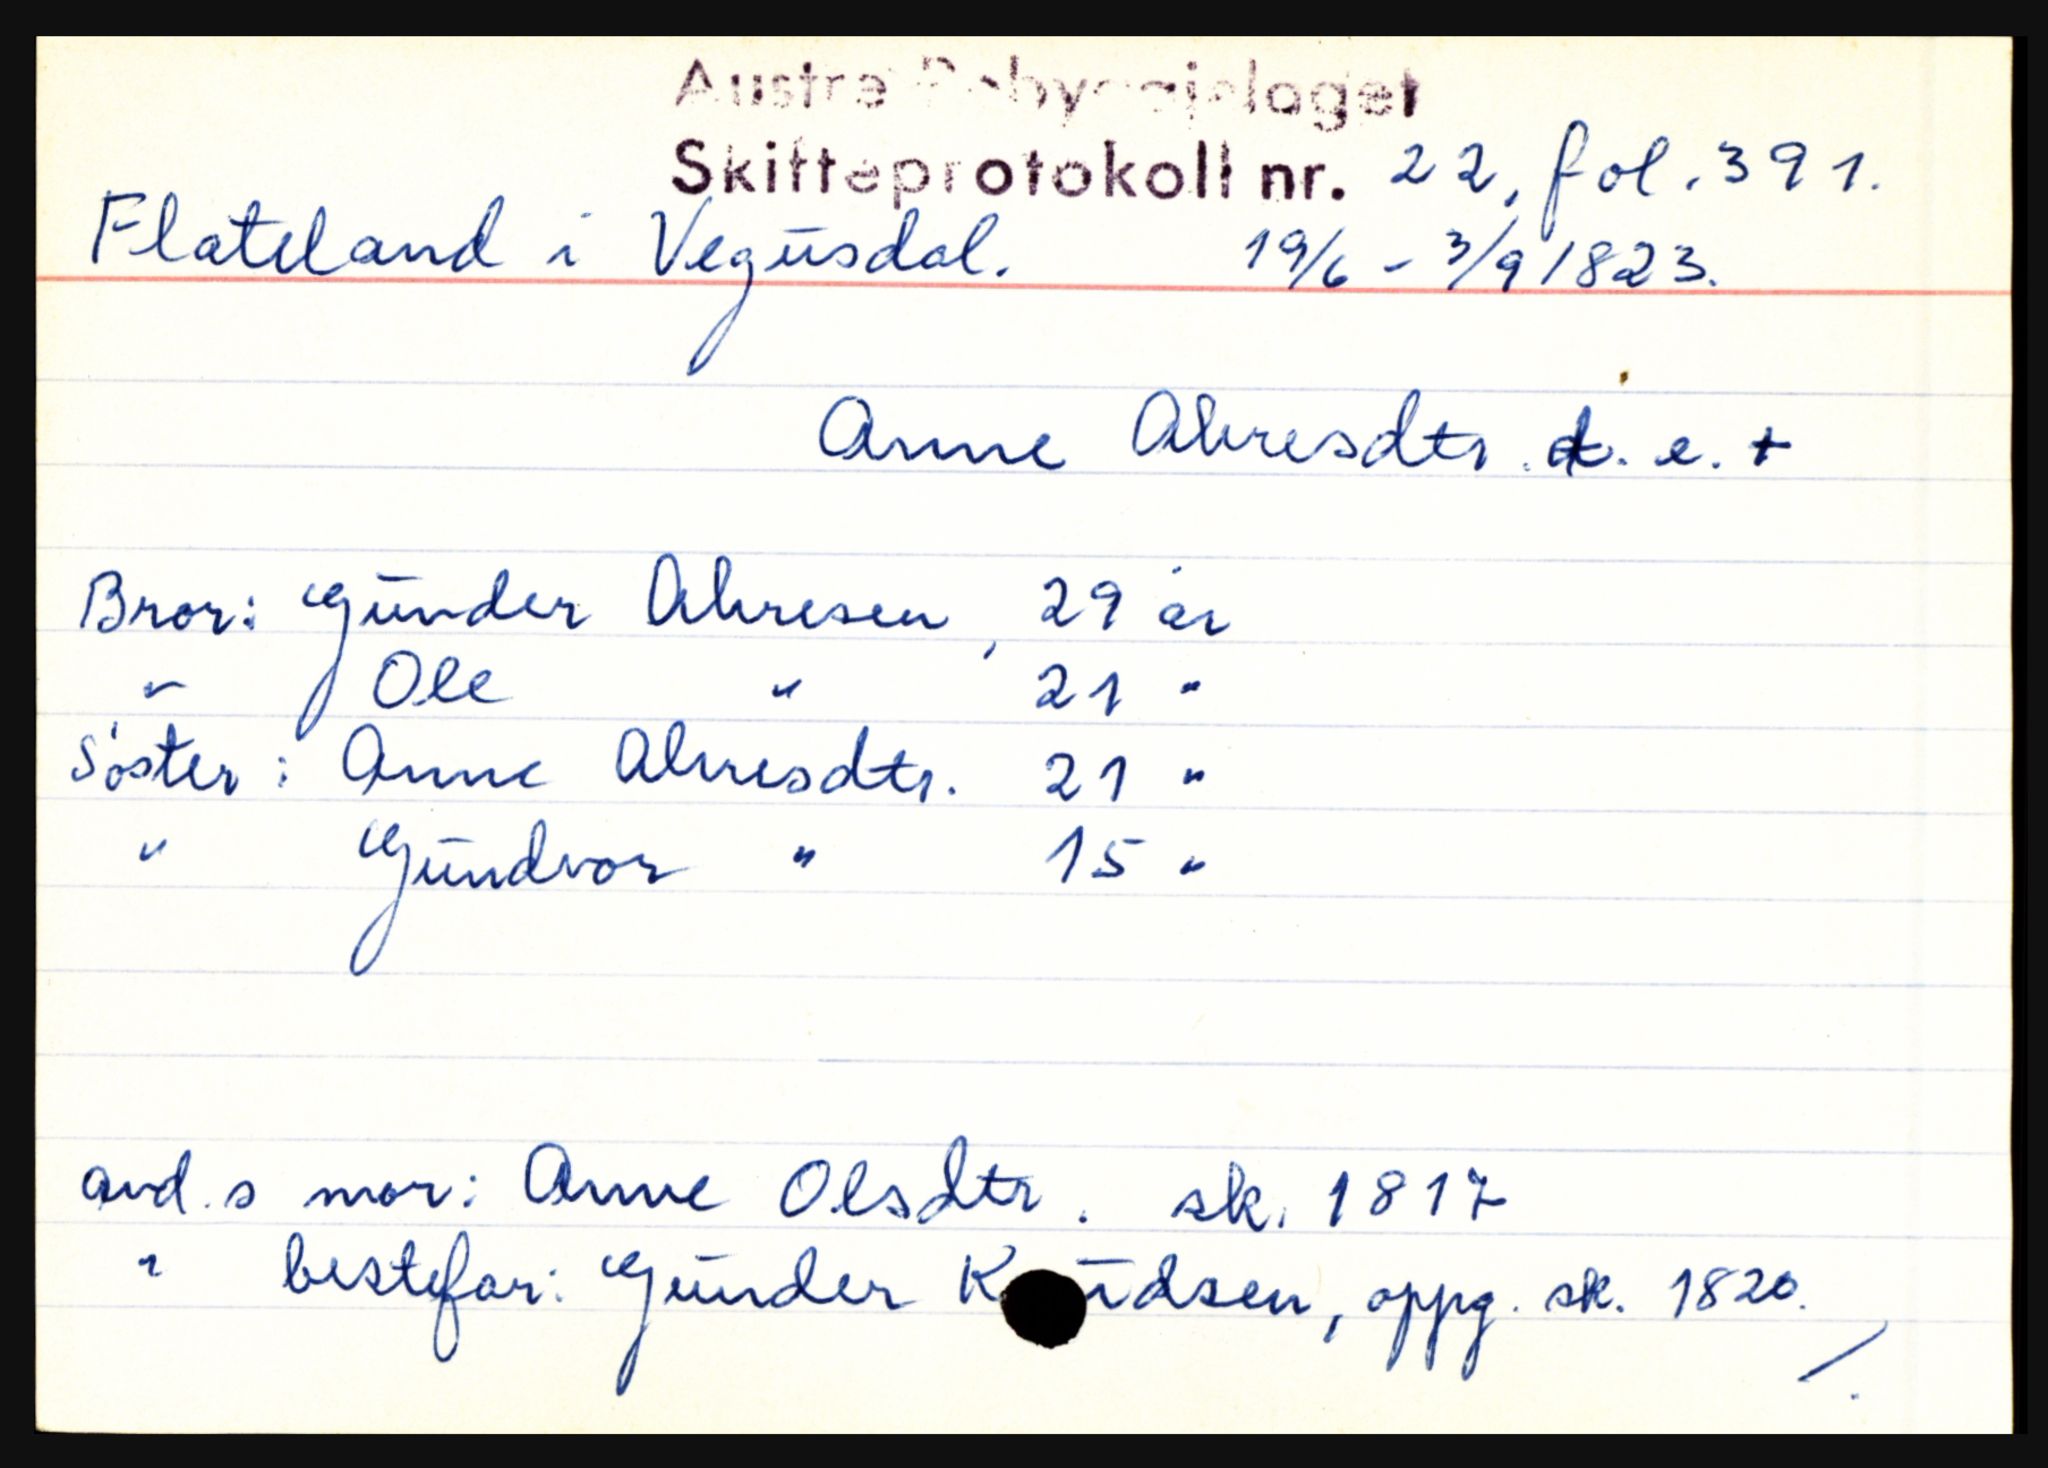 Austre Robyggjelaget
Skifteprotokoll nr. 22, fol. 391.
Flateland i Vegusdal. 19/6 - 3/9 1823.
Anne Alvresdtr. d. e. +
Bror: Gunder Alvresen, 29 år
" Ole " 21 "
Söster: Anne Alvresdtr. 21 "
" Gundvor " 15 "
avd. s mor: Anne Olsdtr. sk. 1817
" bestefar: Gunder Knudsen, oppg. sk. 1820.